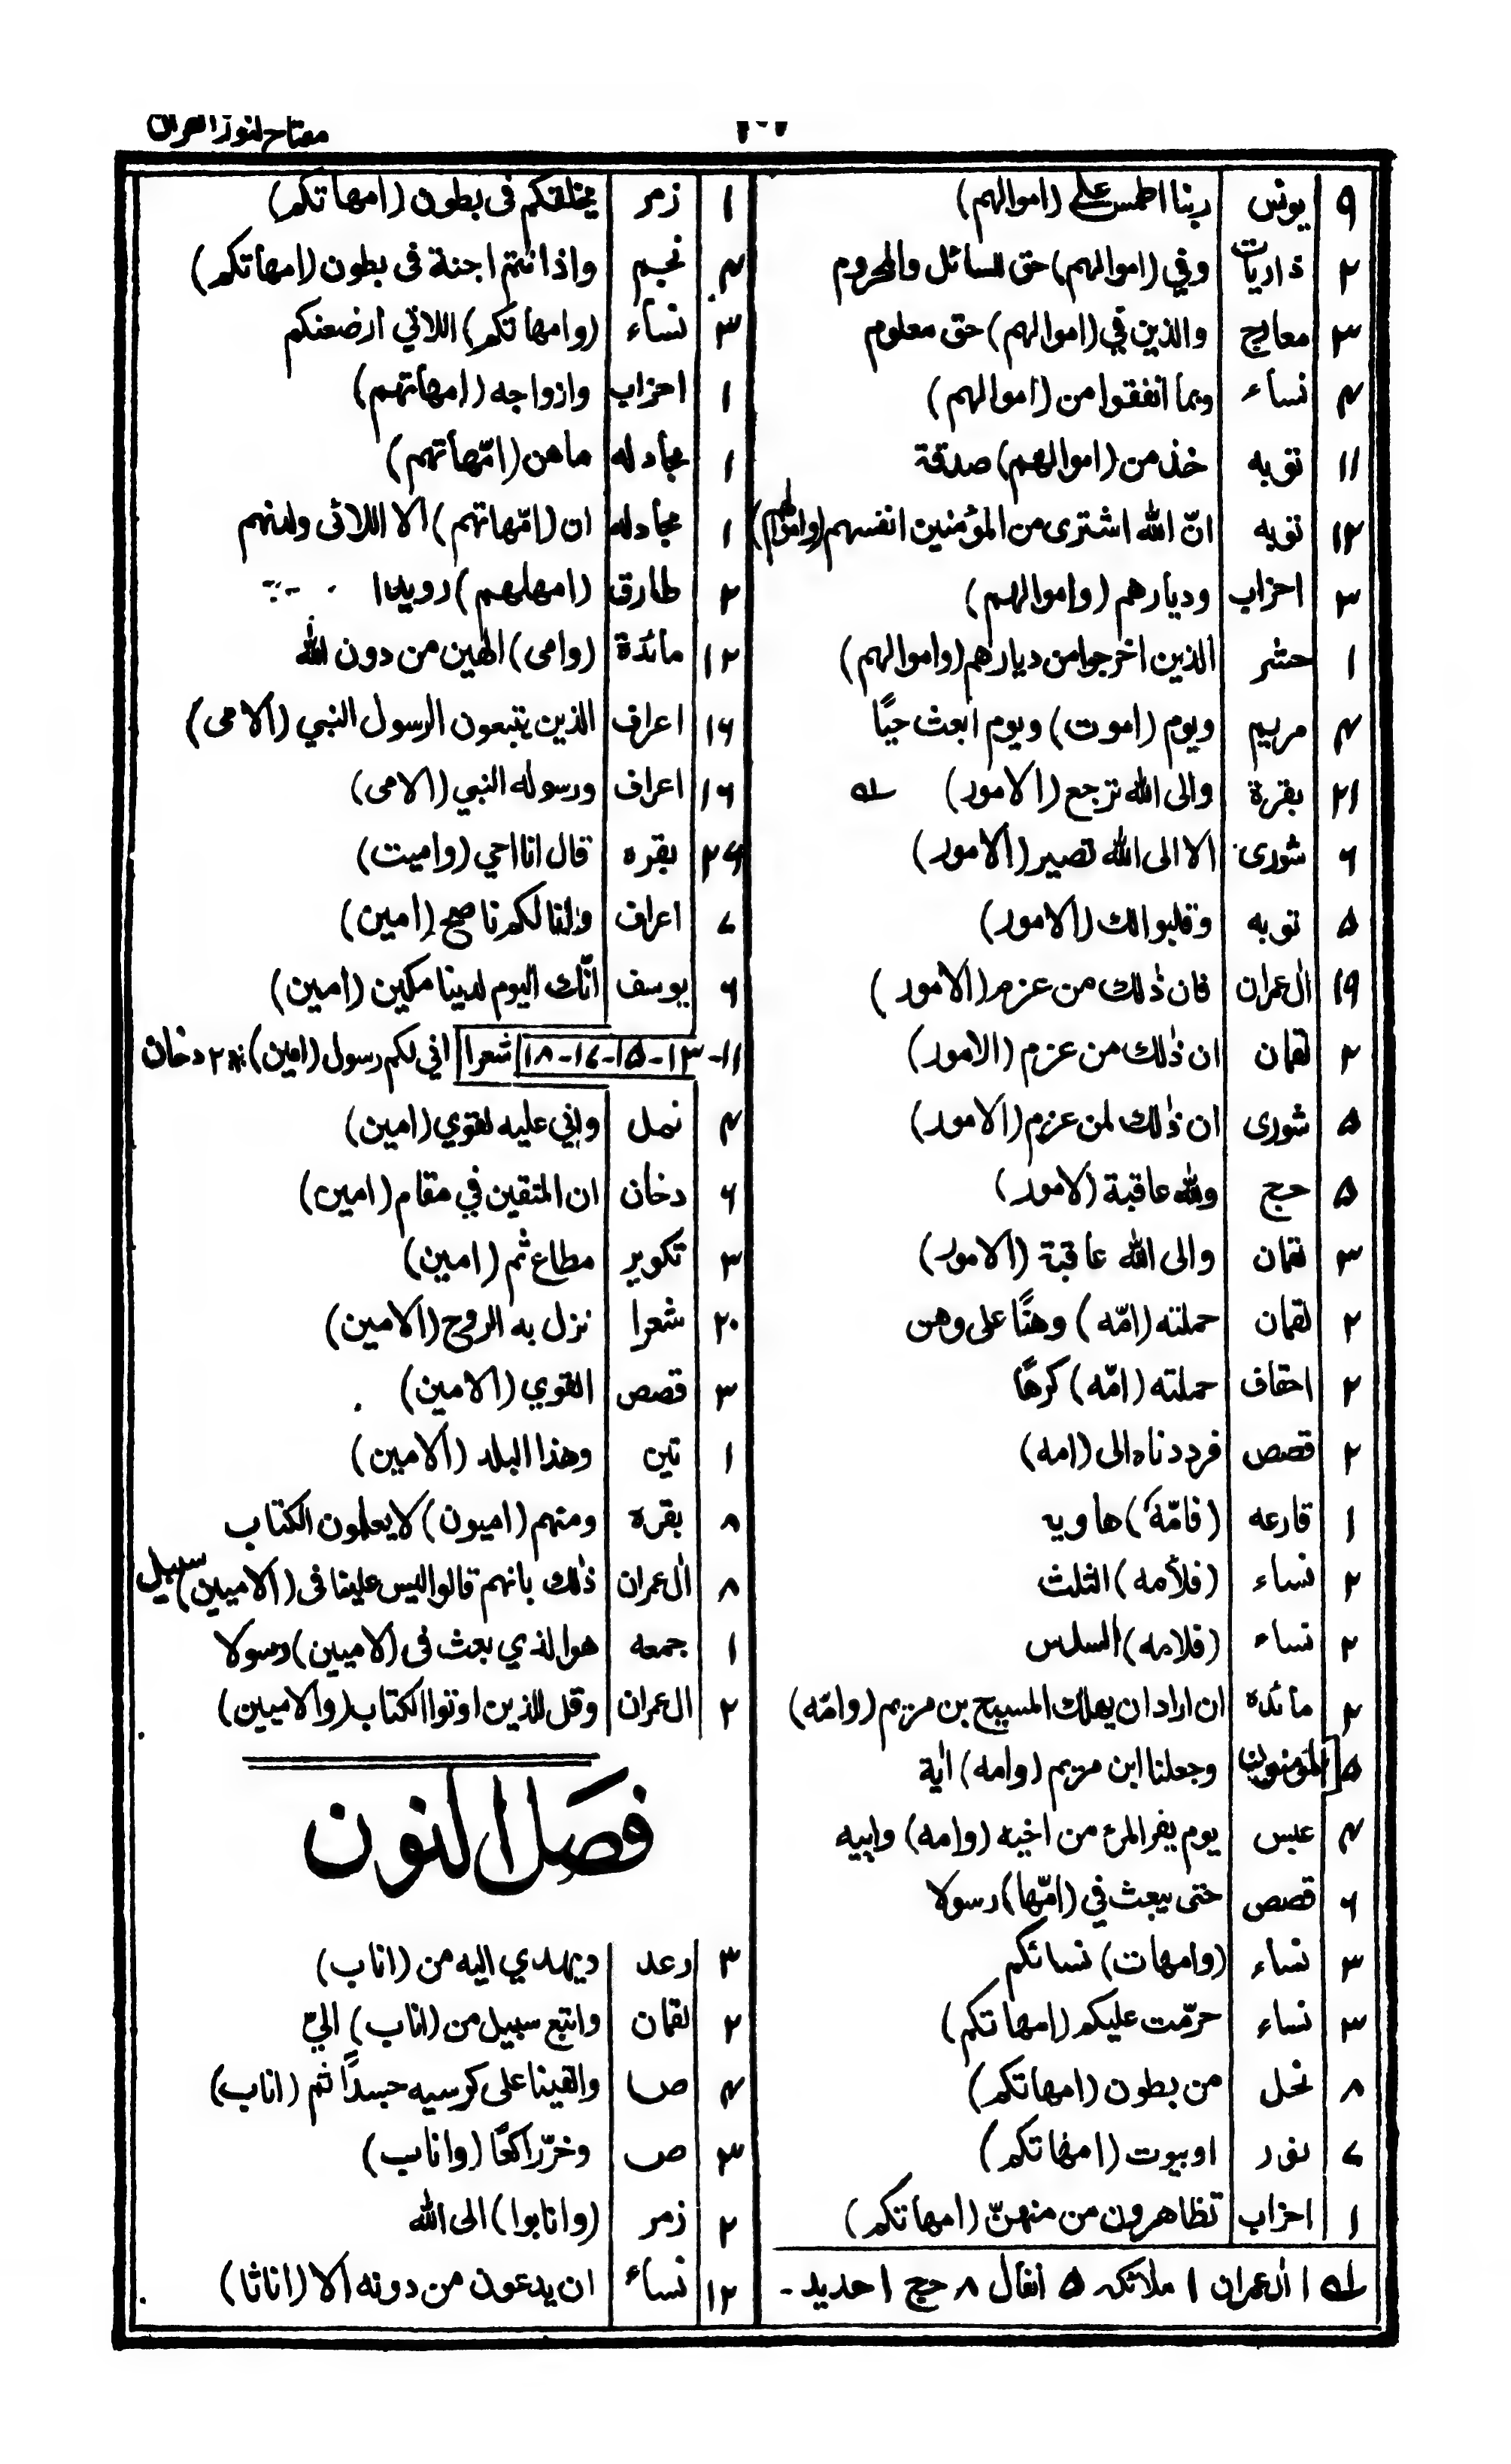 مفتاح كنوز القران
٩ يونس ربنا اطمس على (اموالهم)
٢ ذاريات وفي (اموالهم) حق للسائل والمحروم
٣ معارج والذين في (اموالهم) حق معلوم
٤ نساء وبما انفقوا من (اموالهم)
١١ توبه خذ من (اموالهم) صدقة
١٢ توبه انّ الله اشترى من المؤمنين انفسهم (واموالهم)
٣ احزاب وديارهم (واموالهم)
١ حشر الذين اخرجوا من ديارهم (واموالهم)
٤ مريم ويوم (اموت) ويوم ابعث حيًا
٢١ بقرة والى الله ترجع (الامور) ـه
٦ شورى الا الى الله تصير (الامور)
٥ توبه وقلبوا لك (الامور)
١٩ ال عمران فان ذلك من عزم (الامور)
٢ لقمان ان ذلك من عزم (الامور)
٥ شورى ان ذلك لمن عزم (الامور)
٥ حج ولله عاقبة (لامور)
٣ لقمان والى الله عاقبة (الامور)
٢ لقمان حملته (امّه) وهنًا على وهن
٢ احقاف حملته (امّه) كرهًا
٢ قصص فرددناه الى (امه)
١ قارعه (فامّهٗ) هاويه
٢ نساء (فلأمه) الثلث
٢ نساء (فلامه) السدس
٢ مائده ان اراد ان يهلك المسيح بن مريم (وامّه)
٥ المؤمنون وجعلنا ابن مريم (وامه) اٰية
٤ عبس يوم يفر المرء من اخيه (وامه) وابيه
٦ قصص حتى يبعث في (امّها) رسولا
٣ نساء (وامهات) نسائكم
٣ نساء حرّمت عليكم (امهاتكم)
٨ نحل من بطون (امهاتكم)
٧ نور او بيوت (امهاتكم)
١ احزاب تظاهرون من منهنّ (امهاتكم)
ـه ١ اٰل عمران ١ ملائكه ٥ انفال ٨ حج ١ حديد -
١ زمر يخلقكم فى بطون (امهاتكم)
٤ نجم واذا نتم اجنة فى بطون (امهاتكم)
٣ نساء (وامهاتكم) اللاتي ارضعنكم
١ احزاب وازواجه (امهاتهم)
١ مجادله ما هن (امّهاتهم)
١ مجادله ان (امّهاتهم) الا اللائى ولدنهم
٢ طارق (امهلهم) رويدا
١٢ مائدة (وامى) الهين من دون الله
١٦ اعراف الذين يتبعون الرسول النبي (الامى)
١٦ اعراف ورسوله النبي (الامى)
٢٤ بقره قال انا احي (واميت)
٧ اعراف وانا لكم ناصح (امين)
٦ يوسف انّك اليوم لدينا مكين (امين)
١١-١٣-١٥-١٦-١٨ شعرا اني لكم رسول (امين) ٢ دخان
٤ نمل واني عليه لقوي (امين)
٦ دخان ان المتقين في مقام (امين)
٣ تكوير مطاع ثم (امين)
٢٠ شعرا نزل به الروح (الامين)
٣ قصص القوي (الامين)
١ تين وهذا البلد (الامين)
٨ بقره ومنهم (اميون) لا يعلمون الكتاب
٨ اٰل عمران ذلك بانهم قالوا ليس علينا فى (الاميين) سبيل
١ جمعه هو الذي بعث فى (لاميين) رسولا
٢ ال عمران وقل للذين اوتوا الكتاب (والاميين)
فصل النون
٣ رعد ويهدي اليه من (اناب)
٢ لقمان واتبع سبيل من (اناب) اليّ
٤ ص والقينا على كرسيه جسدًا ثم (اناب)
٣ ص وخرّ راكعًا (واناب)
٢ زمر (وانابوا) الى الله
١٢ نساء ان يدعون من دونه الا (اناثا)